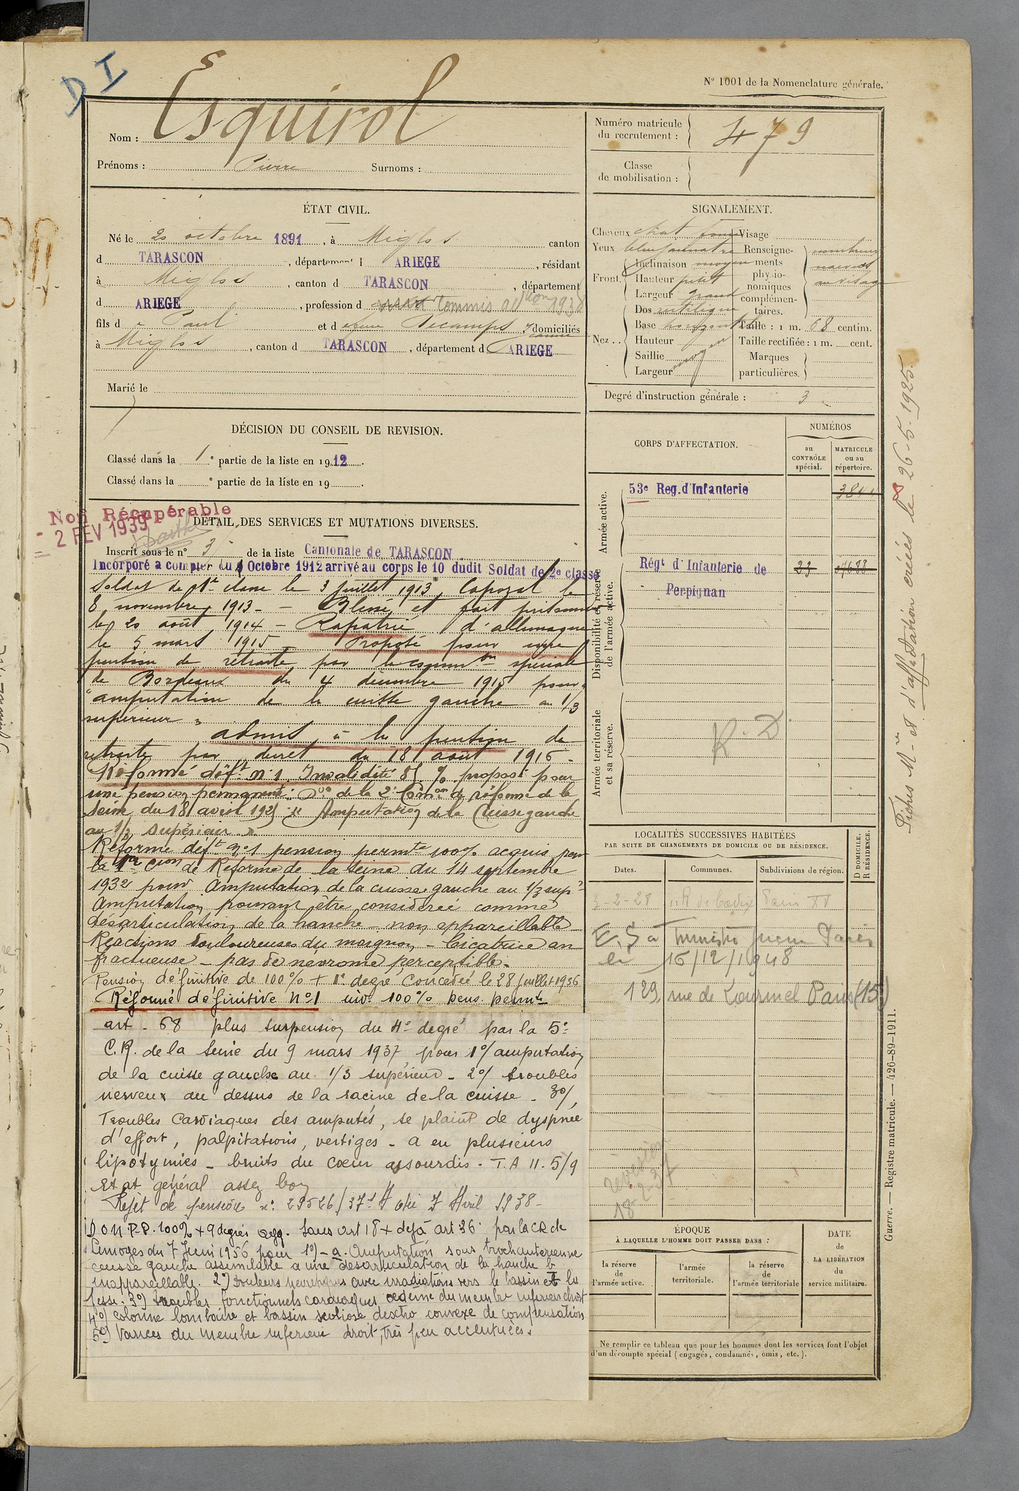 D I
N° 1001 de la Nomenclature générale.
Nom : Esquirol
Prénoms : Pierre Surnoms :
Numéro matricule du recrutement : 479
Classe de mobilisation :
ÉTAT CIVIL.
Né le 20 octobre 1891, à Miglos canton
d TARASCON, départemt d ARIEGE, résidant
à Miglos, canton d TARASCON, département
d ARIEGE, profession d Commis
fils d e Paul et d e Decamps domiciliés
à Miglos, canton d TARASCON, département d ARIEGE
Marié le
SIGNALEMENT.
Cheveux chat Visage
Yeux
Front. Inclinaison moyen
Hauteur petit
Largeur grand
Nez.. Dos rectiligne
Base horizontale
Hauteur
Saillie moyen
Largeur
Renseignements physionomiques complémentaires.
Taille : 1 m. 68 centim.
Taille rectifiée : 1 m. cent.
Marques particulières.
Degré d'instruction générale : 3
DÉCISION DU CONSEIL DE REVISION.
Classé dans la 1e partie de la liste en 1912.
Classé dans la e partie de la liste en 19 .
CORPS D'AFFECTATION.
NUMÉROS
au CONTRÔLE spécial.
MATRICULE ou au répertoire.
Armée active.
53e Reg. d'Infanterie
Disponibilité et réserve de l'armée active.
Régt d'Infanterie de Perpignan
Armée territoriale et sa réserve.
R. D
Non Récupérable
- 2 FEV 1939
DÉTAIL DES SERVICES ET MUTATIONS DIVERSES.
Inscrit sous le n° 3 de la liste Cantonale de TARASCON
Incorporé a compter du 9 Octobre 1912 arrivé au corps le 10 dudit Soldat de 2e classe
Soldat de 1re classe le 3 juillet 1913, Caporal le
8 novembre 1913 - Blessé et fait prisonnier
le 20 août 1914 - Rapatrié d'allemagne
le 5 mars 1915 Proposé pour une
pension de retraite par la common spéciale
de Bordeaux du 4 décembre 1915 pour
"amputation de la cuisse gauche au 1/3
supérieur"
admis à la pension de
retraite par decret du 18 août 1916.
Réforme déft n°1 Invalidité 85 % proposé pour
une pension permanente. Don de la 2e Comon de réforme de la
Seine du 18 avril 1921 "Amputation de la Cuisse gauche
au 1/3 supérieur"
Réforme deft n°1 pension permte 100% acquis par
la 1re Cion de Réforme de la Seine du 14 septembre
1932 pour Amputation de la cuisse gauche au 1/3 supr
Amputation pouvant être considerée comme
desarticulation de la hanche - non appareillable
Réactions douloureuses du moignon - Cicatrice an
fractueuse - pas de nevrome perceptible.
Pension définitive de 100% + 1er degré Concédée le 28 juillet 1936
Réformé définitive N°1 inv. 100% pens. permte
art - 68 plus suspension du 4e degré par la 5e
C.R. de la Seine du 9 mars 1937 pour 1°/ amputation
de la cuisse gauche au 1/3 supérieur - 2°/ troubles
nerveux au dessus de la racine de la cuisse - 3°/
Troubles Cardiaques des amputés, se plaint de dyspnée
d'effort, palpitations, vertiges - a eu plusieurs
lipotymies - bruits du cœur assourdis. T.A 11.5/9
Etat général assez bon
Rejet de pension
D on P.P. 100% + 9 degrés Sans art 18 + dejà art 36 par la CR de
Limoges du 7 Juin 1956 pour 1°) - a. Amputation sous trochanterienne
cuisse gauche assimilable a une desarticulation de la hanche b
inappareillable. 2°) Douleurs nevritiques avec irradiations vers le bassin et la
fesse. 3°) troubles fonctionnels cardiaques, oedeme du membre inferieur droit
4°) colonne lombaire et bassin scoliose dextro convexe de compensation
5°) Varices du membre inferieur droit, très peu accentuées.
LOCALITÉS SUCCESSIVES HABITÉES
PAR SUITE DE CHANGEMENTS DE DOMICILE OU DE RÉSIDENCE.
Dates. Communes. Subdivisions de région. D DOMICILE. R RÉSIDENCE.
3-2-28 Paris XV
le 16/12/1948
129 rue de Lourmel Paris (15)
18-2-37
ÉPOQUE
À LAQUELLE L'HOMME DOIT PASSER DANS :
la réserve de l'armée active.
l'armée territoriale.
la réserve de l'armée territoriale
DATE de LA LIBÉRATION du service militaire.
Ne remplir ce tableau que pour les hommes dont les services font l'objet
d'un décompte spécial (engagés, condamnés, omis, etc.).
Fiches Mle et d'affectation créées le 26-5-1925
Guerre. — Registre matricule. — 426-89-1911.